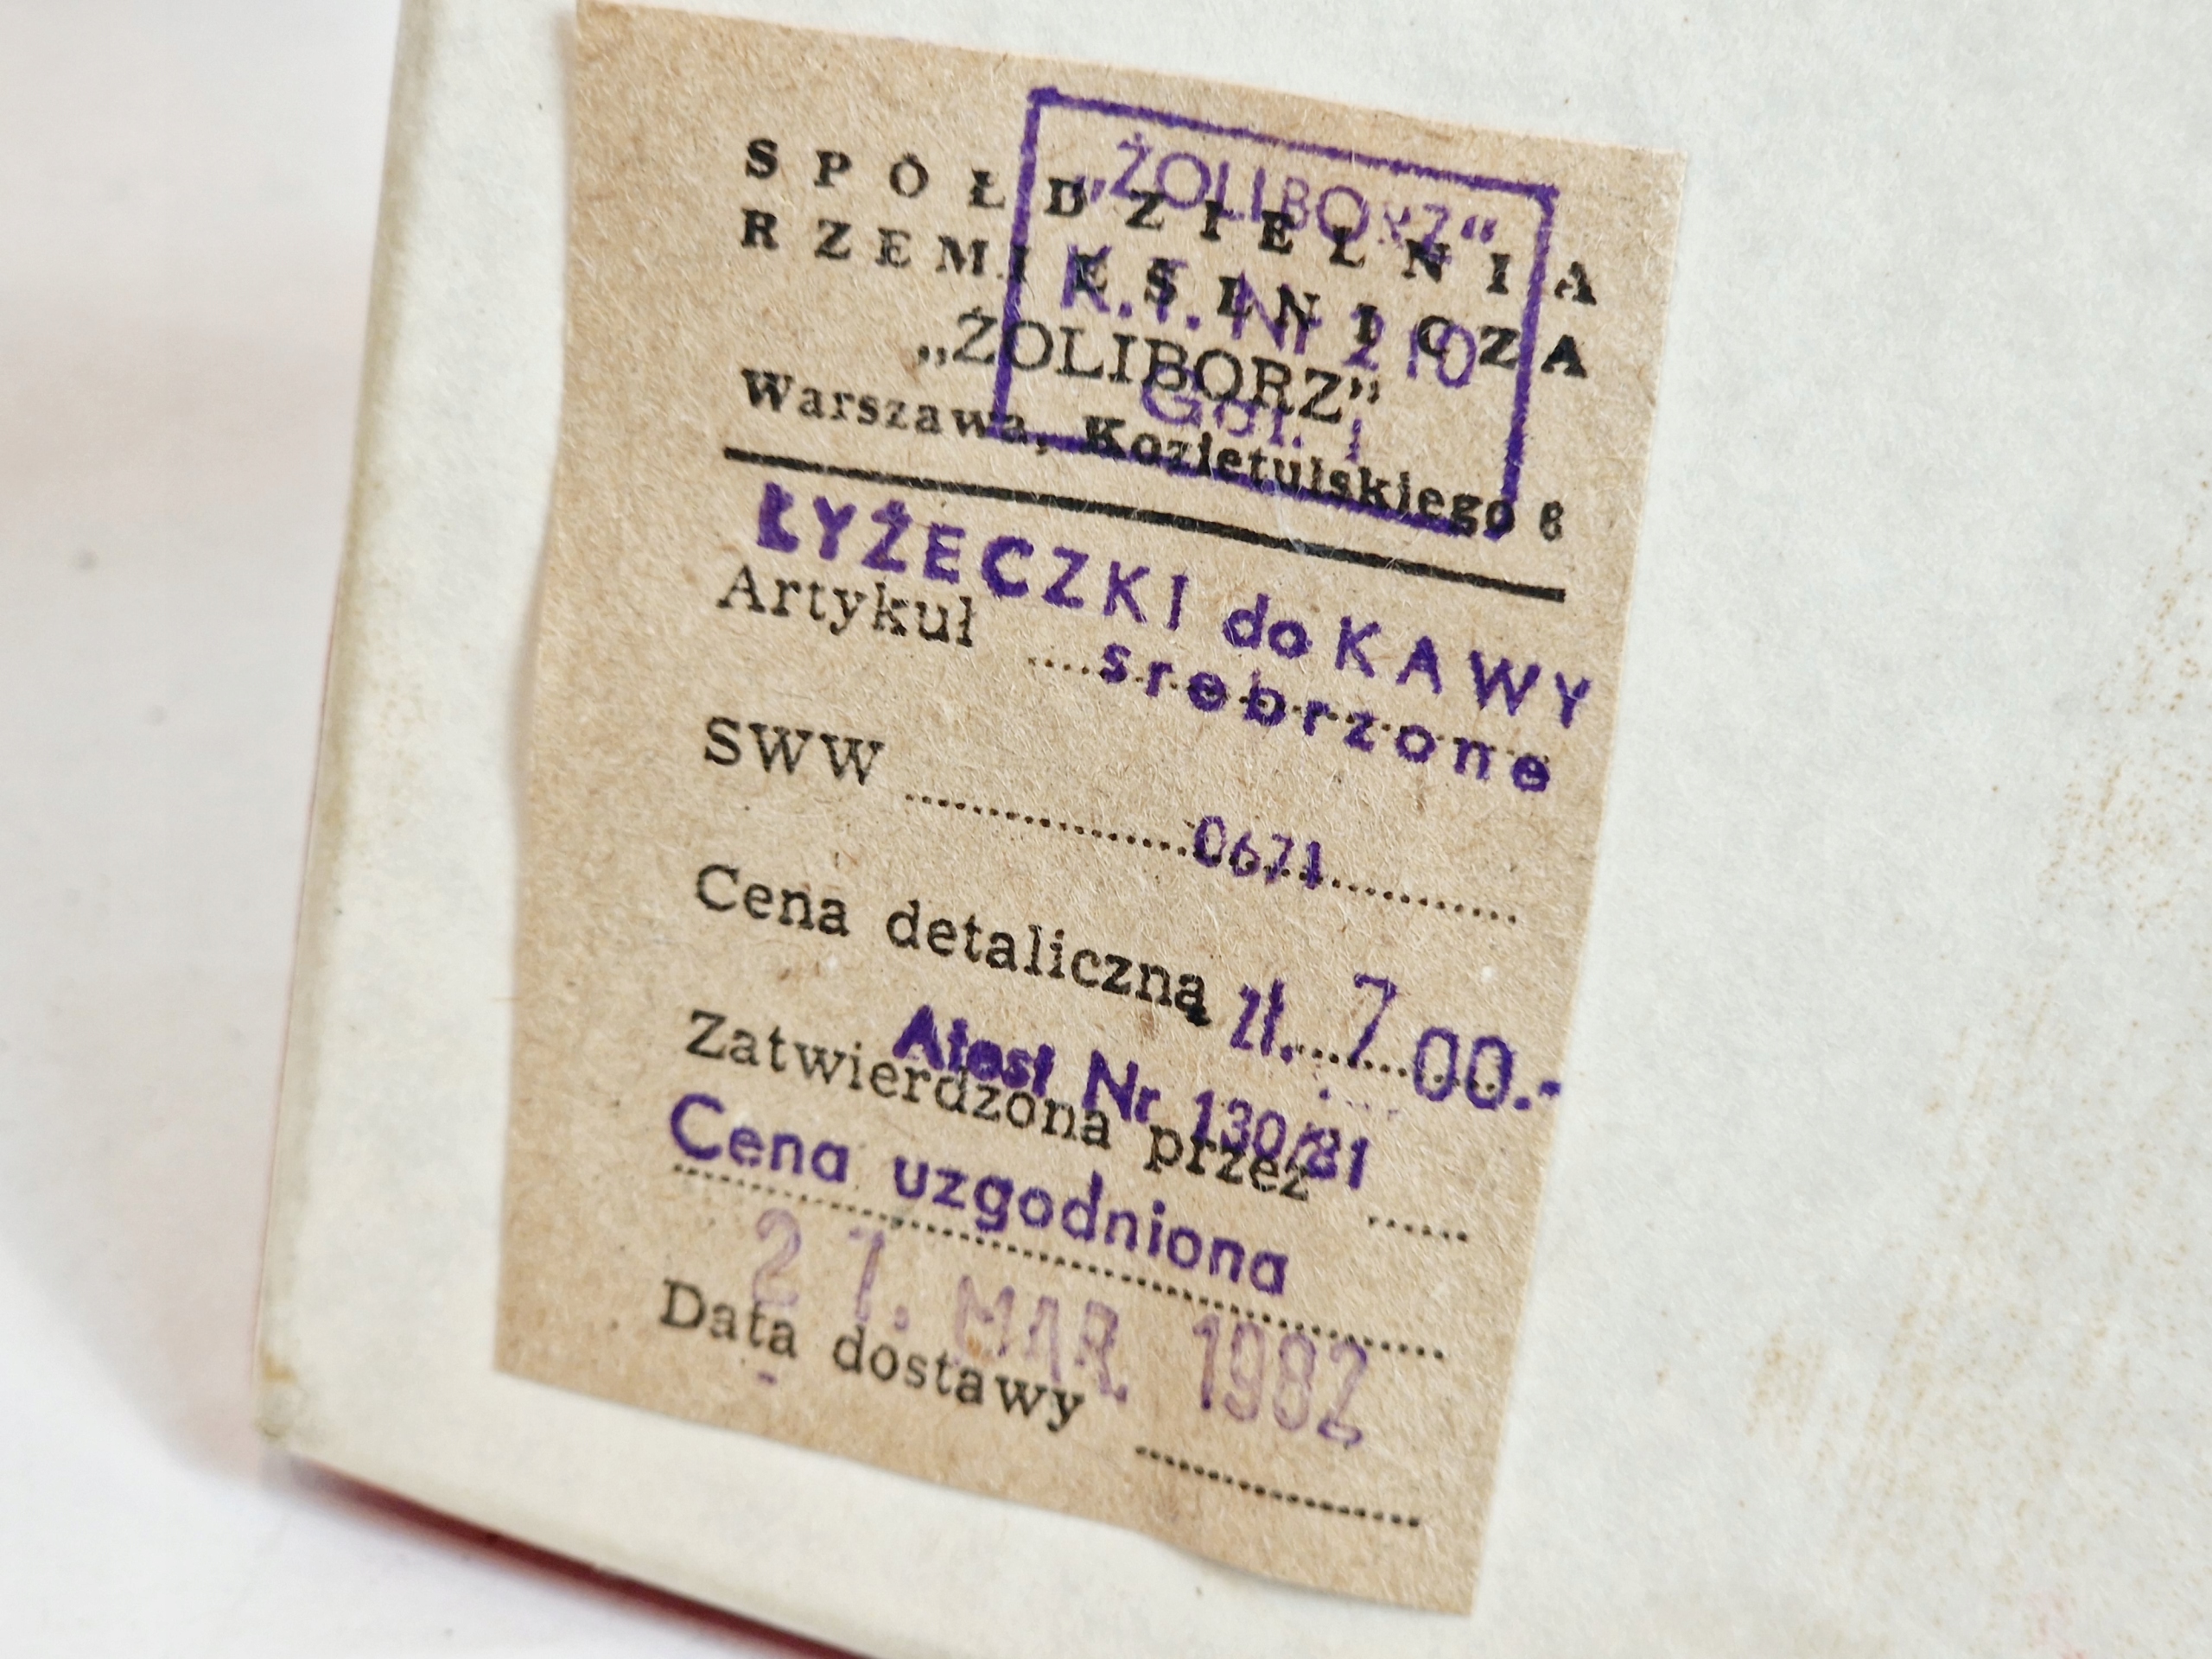 SPÓŁDZIELNIA
RZEMIEŚLNICZA
„ŻOLIBORZ”
Warszawa, Kozietulskiego 8
„ŻOLIBORZ“
K.T. Nr 210
Gat. 1
ŁYŻECZKI do KAWY
Artykuł srebrzone
SWW 0671
Cena detaliczną zł. 700.-
Atest Nr 130/81
Zatwierdzona przez
Cena uzgodniona
27. MAR. 1982
Data dostawy